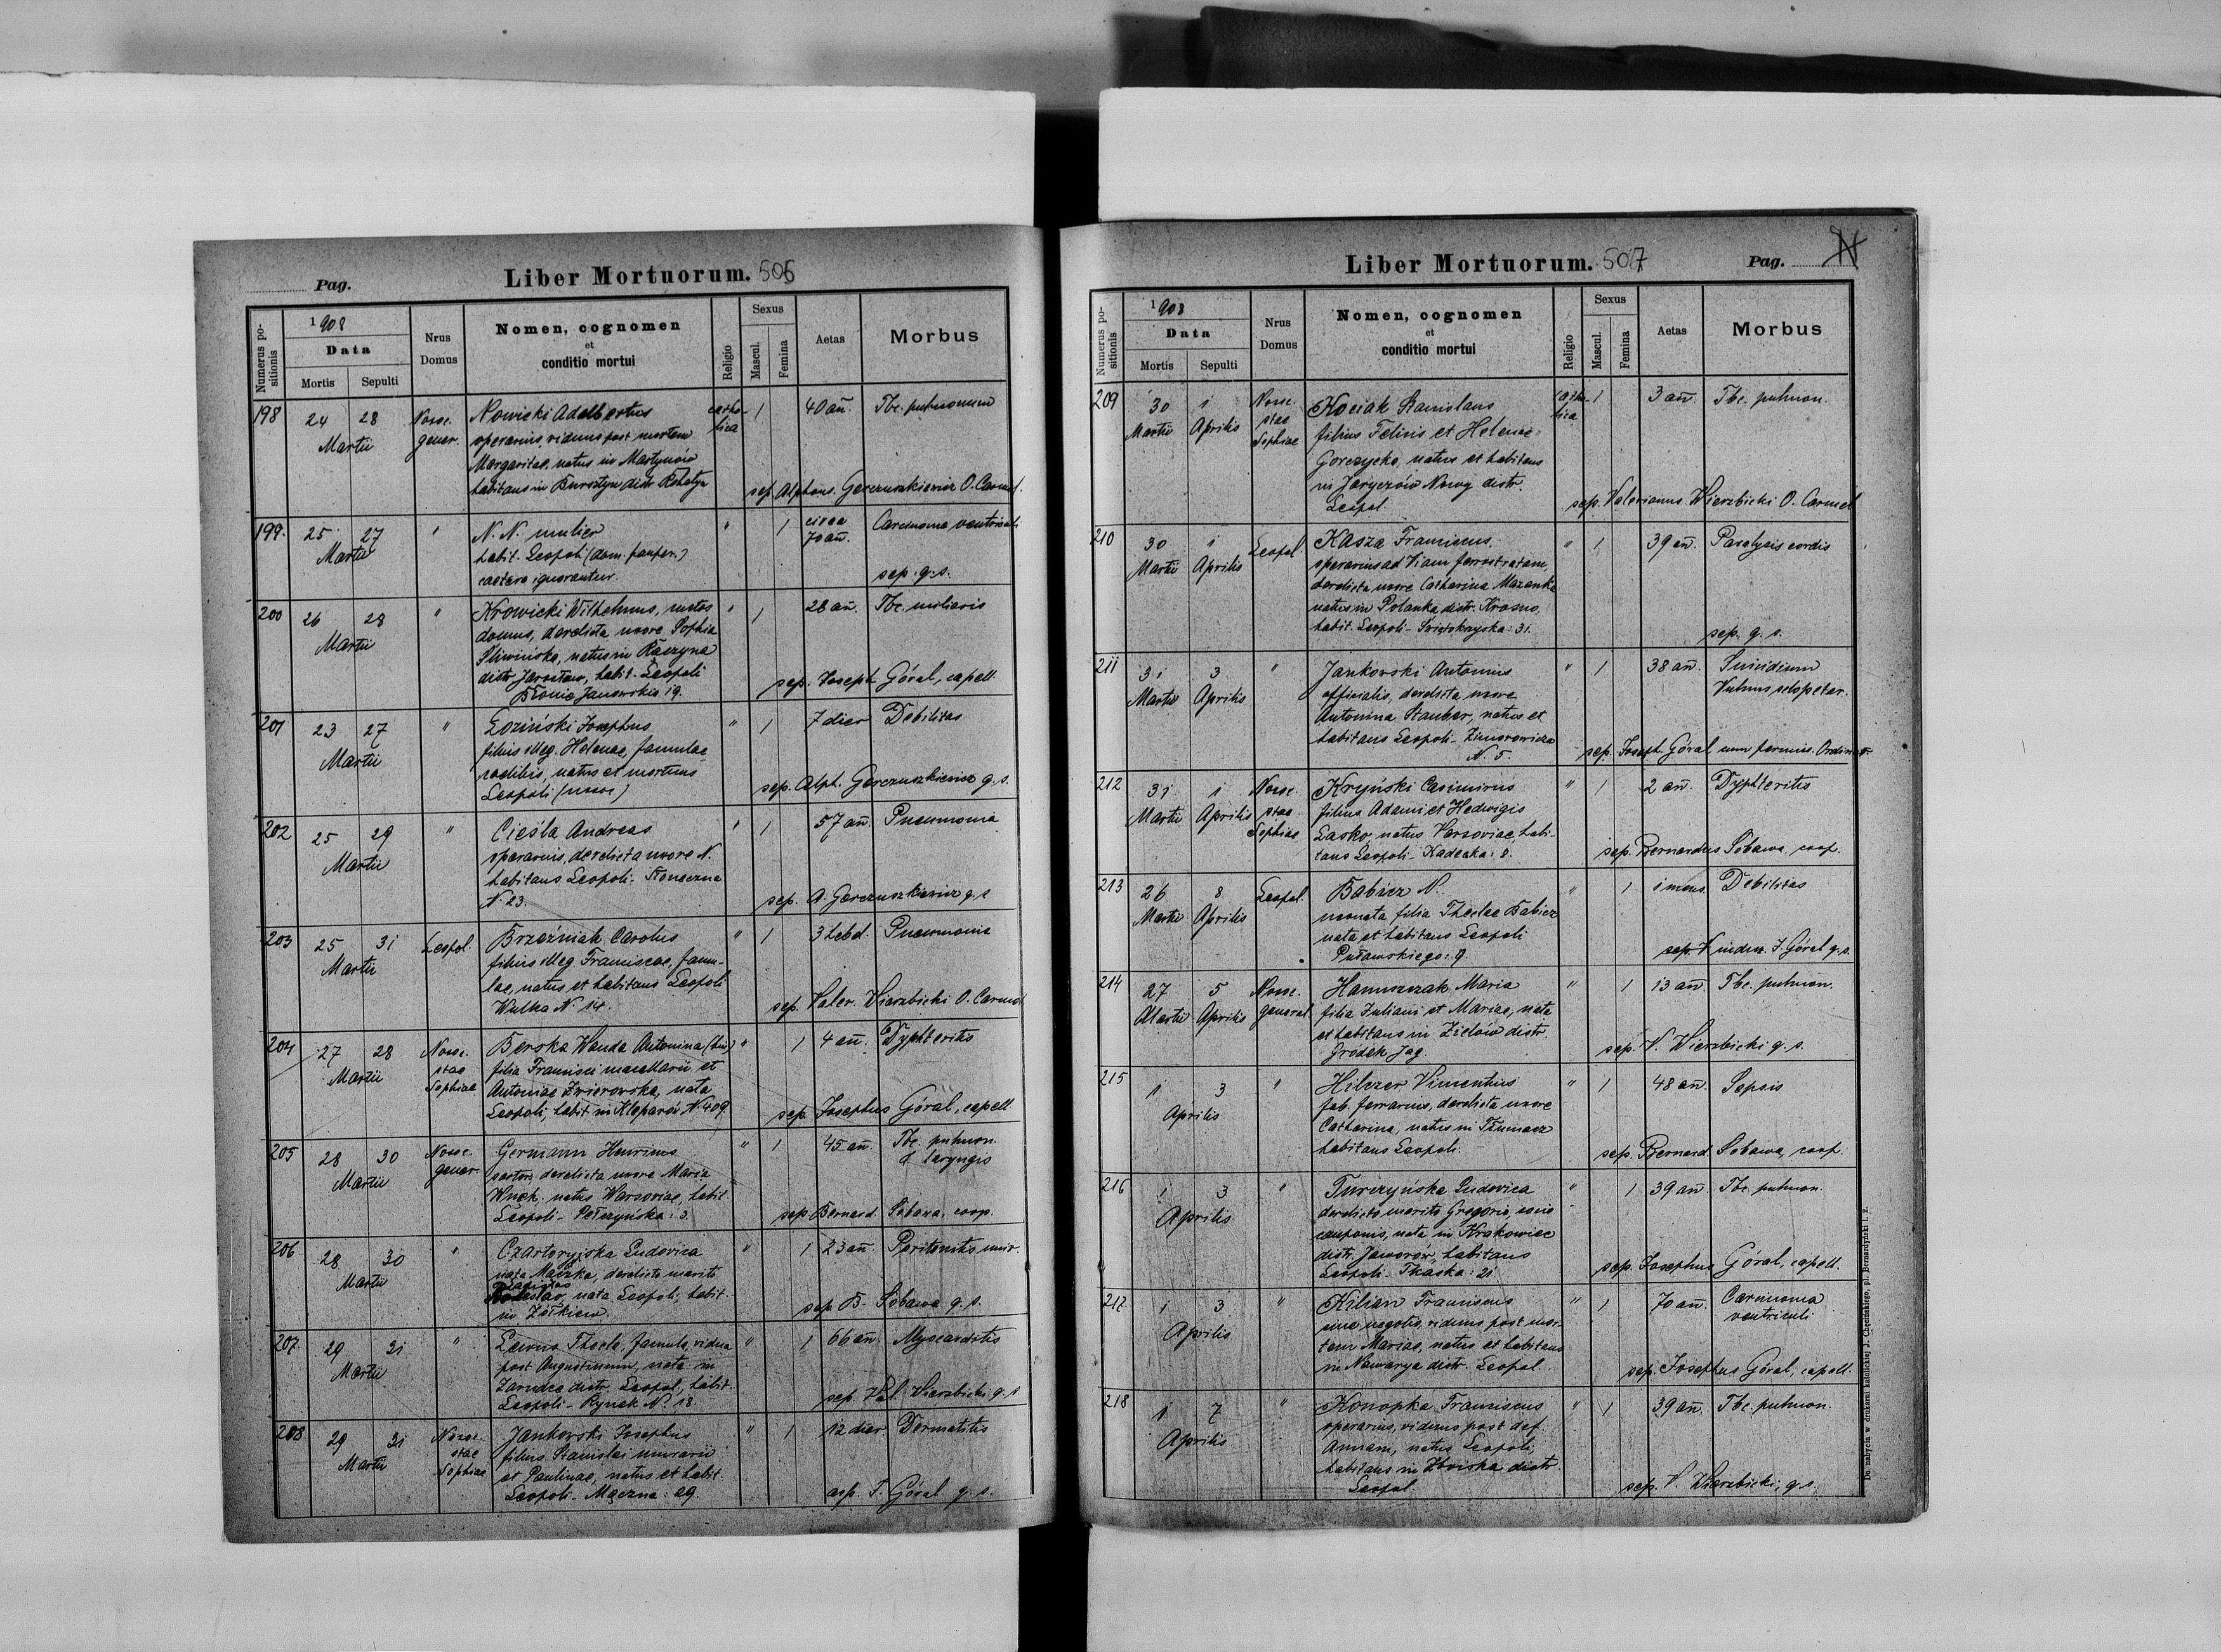 Pag.
Liber Mortuorum. 506
Numerus positionis
1908
Data
Mortis
Sepulti
Nrus Domus
Nomen, cognomen
et
conditio mortui
Religio
Sexus
Mascul.
Femina
Aetas
Morbus
198 24 28 Noso. Nowicki Adelbertus catho- 1 40 añ. Tbc. pulmonum
Martii gener. operarius, viduus post mortem lica
Margaritae, natus in Martynów
habitans in Bursztyn distr. Rohatyn sep. Alphons. Gerczuszkiewicz O. Carmel.
199. 25 27 " N. N. mulier " 1 circa 70 añ. Carcinoma ventriculi
Martii habit. Leopoli (dom. pauper.)
caetera ignorantur. sep. q. s.
200 26 28 " Krowicki Wilhelmus, custos " 1 28 añ. Tbc. miliaris
Martii domus, derelicta uxore Sophia
Śliwińska, natus in Raczyna
distr. Jarosław, habit. Leopoli sep. Joseph Góral, capell.
Błonie Janowskie 19.
201 23 27 " Łoziński Josephus " 1 7 dier Debilitas
Martii filius illeg. Helenae, famulae
caelibis, natus et mortuus
Leopoli sep. Alph. Gerczuszkiewicz q. s.
202 25 29 " Cieśla Andreas " 1 57 añ. Pneumonia
Martii operarius, derelicta uxore N.
habitans Leopoli - Słoneczna
N. 23. sep. A. Gerczuszkiewicz q. s
203 25 31 Leopol. Brzeźniak Carolus " 1 3 hebd. Pneumonia
Martii filius illeg. Franciscae, famu-
lae, natus et habitans Leopoli
Wulka N. 14. sep. Valer. Wierzbicki O. Carmel
204 27 28 Noso. Berska Wanda Antonina (bin) " 1 4 añ. Dyphteritis
Martii stae filia Francisci et
Sophiae Antoniae Zwierowska, nata
Leopoli, habit. in Kleparów N. 409. sep. Josephus Góral, capell.
205 28 30 Noso. Germann Henricus " 1 45 añ. Tbc. pulmon.
Martii gener. sartor, derelicta uxore Maria & laryngis
Wnęk. natus Varsoviae, habit.
Leopoli - Pełczyńska: 3. sep. Bernard. Sobawa, coop.
206 28 30 " Czartoryjska Ludovica " 1 23 añ. Peritonitis
Martii nata Maczka, derelicto marito
Ladislao, nata Leopoli, habit.
in Żółkiew. sep. B. Sobawa q. s.
207. 29 31 " Thecla, famula, vidua " 1 66 añ. Myocarditis
Martii post Augustinum, nata in
Zarudce distr. Leopol., habit.
Leopoli - Rynek N. 18. sep. Val. Wierzbicki q. s
208 29 31 Noso. Jankowski Josephus " 1 12 dier. Dermatitis
Martii stae filius Stanislai murarii
Sophiae et Paulinae, natus et habit.
Leopoli - Mączna: 29. sep. J. Góral q. s.
Liber Mortuorum. 507
Pag.
Numerus positionis
1908
Data
Mortis
Sepulti
Nrus Domus
Nomen, cognomen
et
conditio mortui
Religio
Sexus
Mascul.
Femina
Aetas
Morbus
209 30 1 Noso. Kociak Stanislaus catho- 1 3 añ. Tbc. pulmon.
Martii Aprilis stae filius Felicis et Helenae lica
Sophiae Gorczycka, natus et habitans
in Jaryczów Nowy distr. sep. Valerianus Wierzbicki O. Carmel
Leopol.
210 30 1 Leopol. Kasza Franciscus, " 1 39 añ. Paralysis cordis
Martii Aprilis operarius ad viam ferrostratam,
derelicta uxore Catharina Mazanka
natus in Polanka distr. Krosno,
habit. Leopoli - Świętokrzyska: 31. sep. q. s.
211 31 3 " Jankowski Antonius " 1 38 añ. Suicidium
Martii Aprilis officialis, derelicta uxore Vulnus sclopetar.
Antonina Stauber, natus et
habitans Leopoli - Zimorowicza
N. 5. sep. Joseph. Góral cum permis. Ordinar.
212 31 1 Noso. Kryński Casimirus " 1 2 añ. Dyphteritis
Martii Aprilis stae filius Adami et Hedwigis
Sophiae Lasko, natus Varsoviae, habi-
tans Leopoli - Kadecka: 8. sep. Bernardus Sobawa, coop.
213 26 8 Leopol. Babicz N. " 1 1 mens. Debilitas
Martii Aprilis neonata filia Theclae Babicz
nata et habitans Leopoli
Pułaskiego: 9. sep. J. Góral q. s.
214 27 5 Noso. Hanuszczak Maria " 1 13 añ. Tbc. pulmon.
Martii Aprilis general. filia Juliani et Mariae, nata
et habitans in Zielów distr.
Gródek Jag. sep. V. Wierzbicki q. s.
215 1 3 " Hilczer Vincentius " 1 48 añ. Sepsis
Aprilis fab. ferrarius, derelicta uxore
Catharina, natus in Tłumacz
habitans Leopoli. sep. Bernard. Sobawa, coop.
216 1 3 " Turczyńska Ludovica " 1 39 añ. Tbc. pulmon.
Aprilis derelicto marito Gregorio, socio
cauponis, nata in Krakowiec
distr. Jaworow, habitans
Leopoli - Tkacka: 21. sep. Josephus Góral, capell.
217. 1 3 " Kilian Franciscus " 1 70 añ. Carcinoma
Aprilis sine negotio, viduus post mor- ventriculi
tem Mariae, natus et habitans
in Nawarya distr. Leopol. sep. Josephus Góral, capell.
218 1 7 " Konopka Franciscus " 1 39 añ. Tbc. pulmon.
Aprilis operarius, viduus post def.
Annam, natus Leopoli,
habitans in Zboiska distr.
Leopol. sep. V. Wierzbicki, q. s.
Do nabycia w drukarni katolickiej J. Chęcińskiego, pl. Bernardyński l. 2.